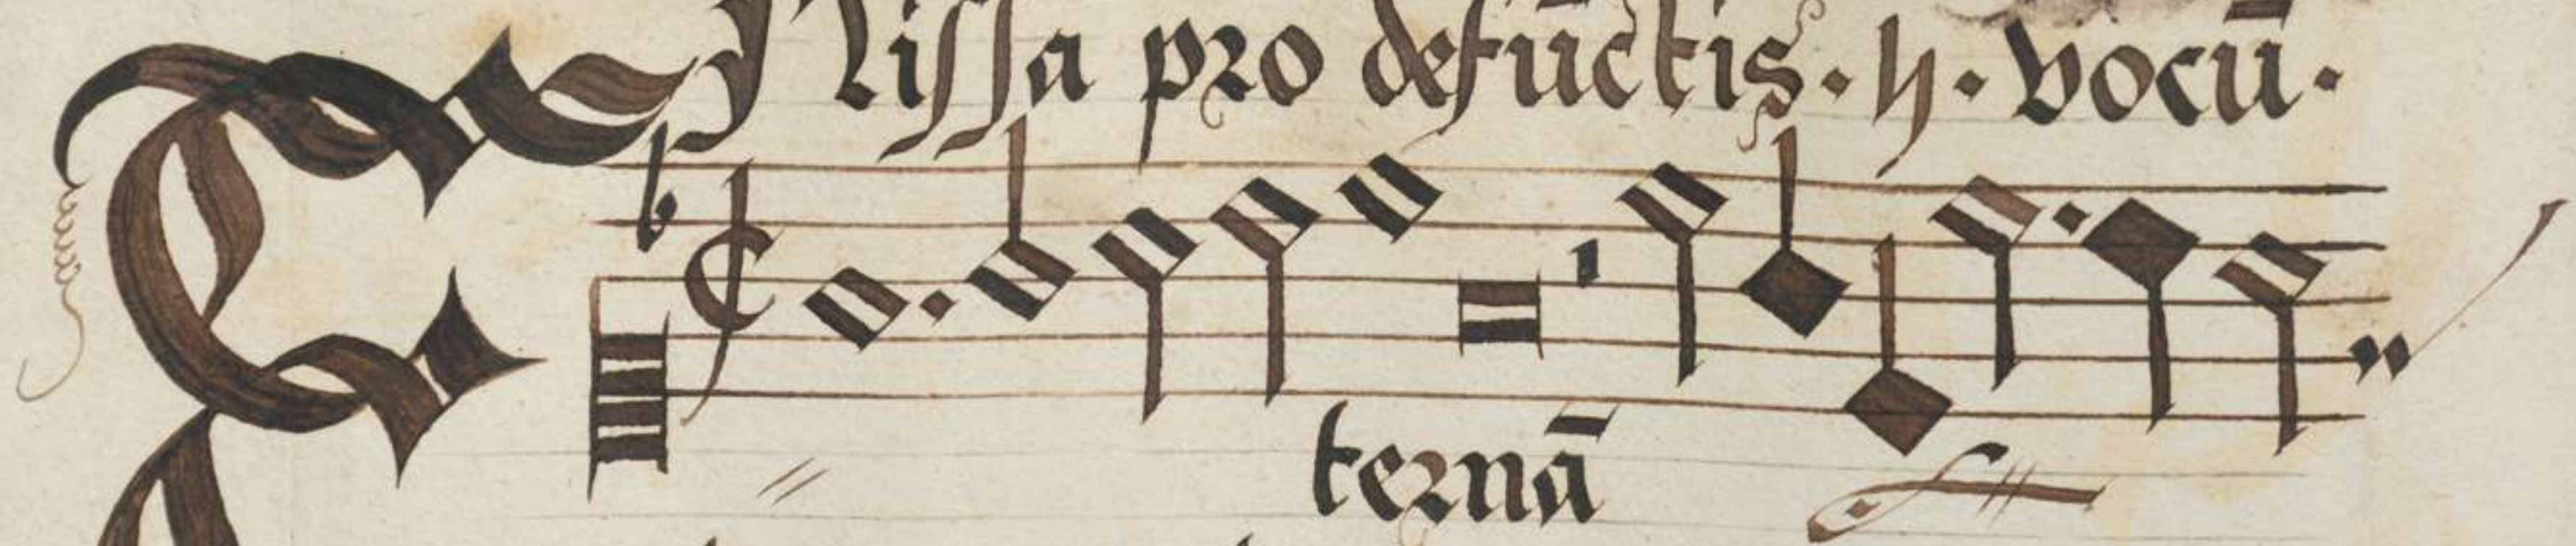 Missa pro defūctis. 4. vocū.
ternā